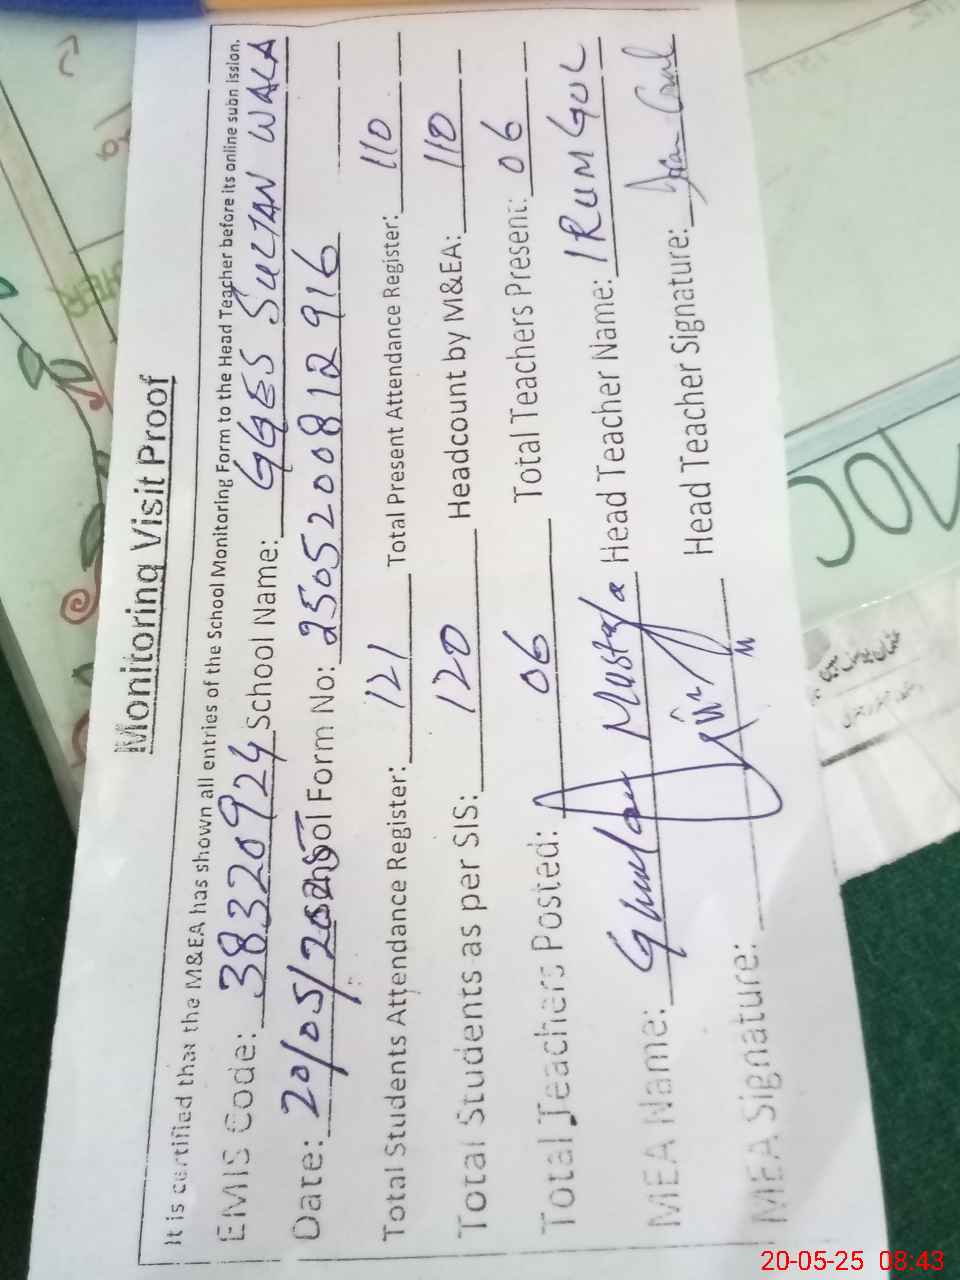 Monitoring Visit Proof
It is certified that the M&EA has shown all entries of the School Monitoring Form to the Head Teacher before its online submission.
EMIS Code: 38320924 School Name: GGES SULTAN WALA
Date: 20/05/2025 School Form No: 2505200812916
Total Students Attendance Register: 121 Total Present Attendance Register: 110
Total Students as per SIS: 120 Headcount by M&EA: 110
Total Teachers Posted: 06 Total Teachers Present: 06
MEA Name: Ghulam Mustafa Head Teacher Name: IRUM GUL
MEA Signature: Head Teacher Signature:
20-05-25 08:43